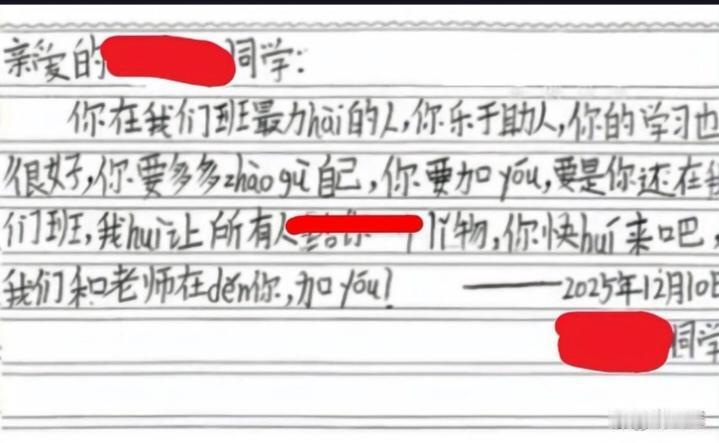 亲爱的 同学：
你在我们班最力hài的人，你乐于助人，你的学习也
很好，你要多多zhào gù自己，你要加yóu，要是你还在我
们班，我huì让所有人 lǐ物，你快huí来吧，
我们和老师在děn你，加yóu！ ——2025年12月10日
同学